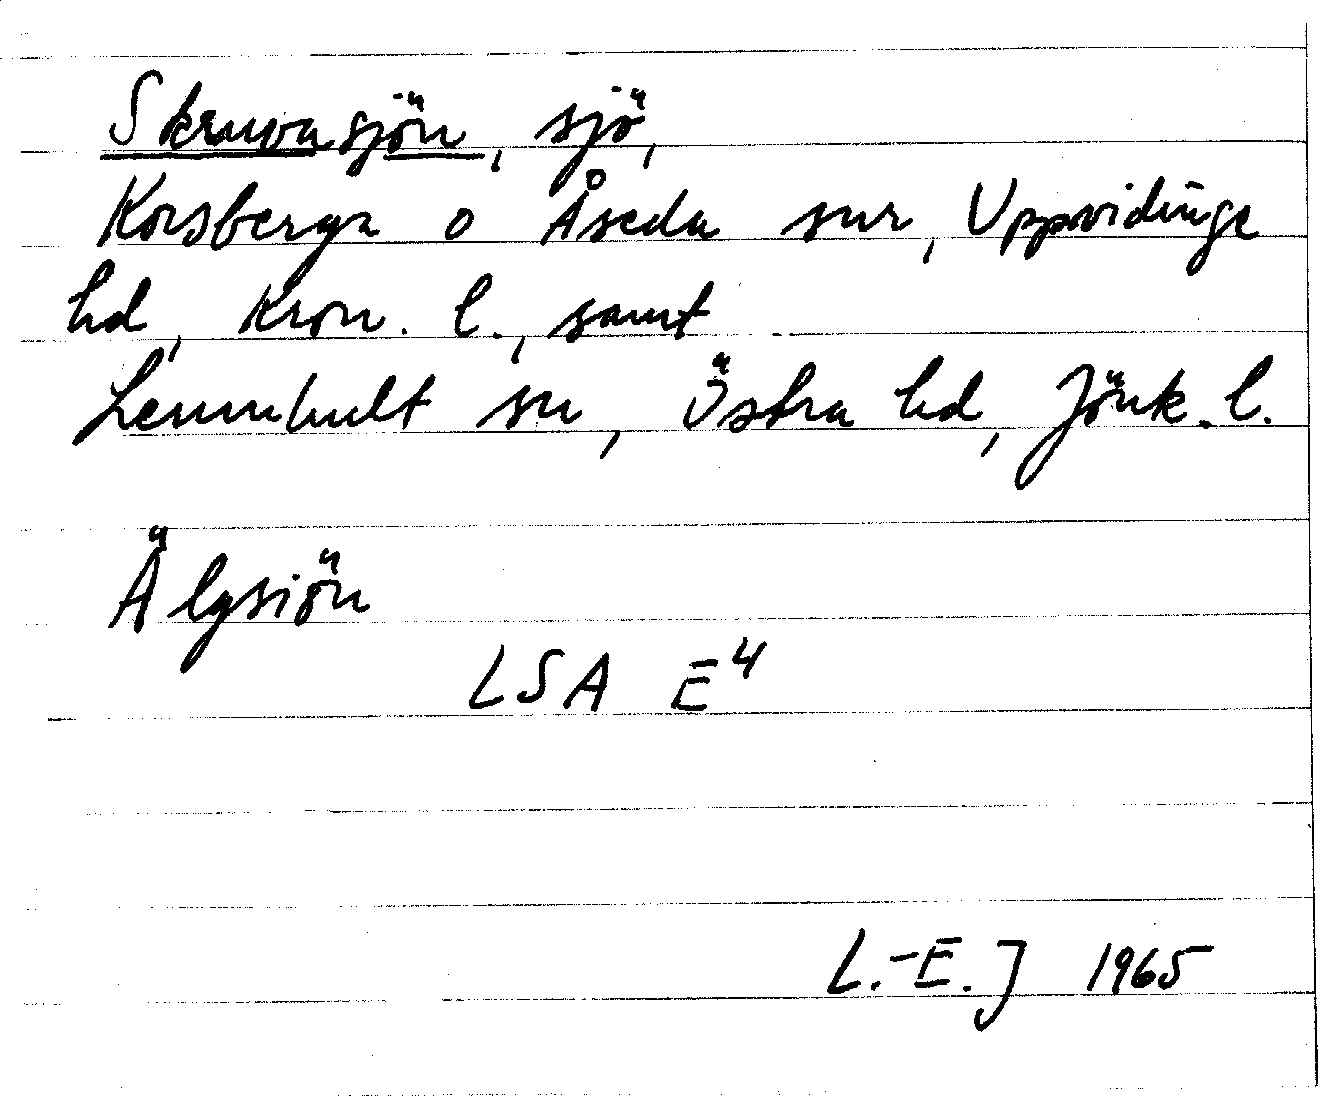 Skruvasjön, sjö,
Korsberga o Åseda snr, Uppvidinge
hd, Kron. l., samt
Lemnhult sn, Östra hd, Jönk. l.
Älgsiön
LSA E⁴
L.-E. J 1965